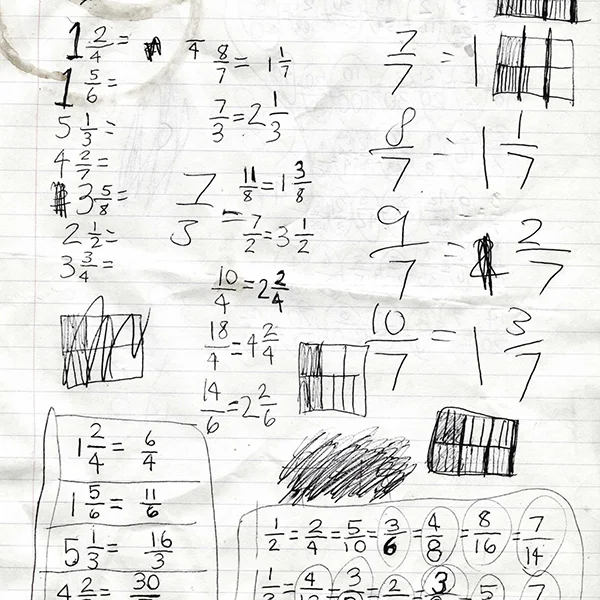 1 2/4 =
1 5/6 =
5 1/3 =
4 2/7 =
3 5/8 =
2 1/2 =
3 3/4 =
8/7 = 1 1/7
7/3 = 2 1/3
7/3 =
11/8 = 1 3/8
7/2 = 3 1/2
10/4 = 2 2/4
18/4 = 4 2/4
14/6 = 2 2/6
7/7 = 1
8/7 = 1 1/7
9/7 = 2/7
10/7 = 1 3/7
1 2/4 = 6/4
1 5/6 = 11/6
5 1/3 = 16/3
1/2 = 2/4 = 5/10 = 3/6 = 4/8 = 8/16 = 7/14